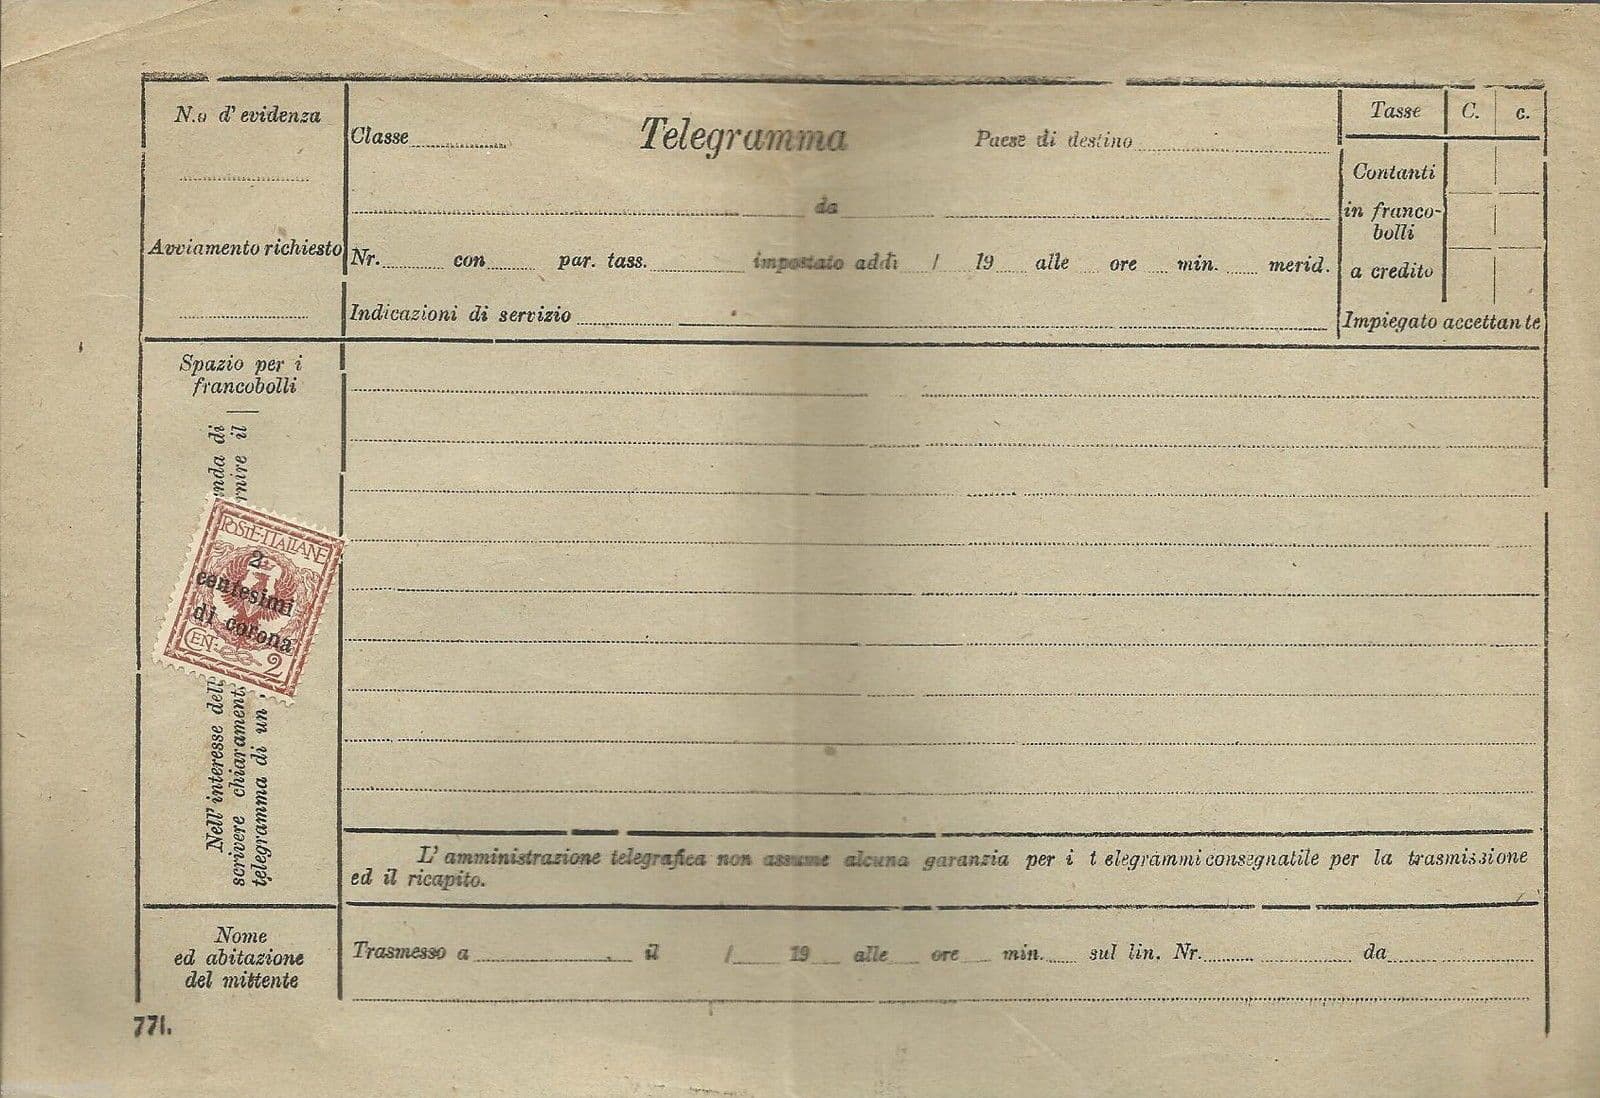 N.o d' evidenza
Avviamento richiesto
Classe Telegramma Paese di destino
da
Nr. con par. tass. impostato addì / 19 alle ore min. merid.
Indicazioni di servizio
Tasse C. c.
Contanti
in franco-
bolli
a credito
Impiegato accettante
Spazio per i
francobolli
Nell' interesse dell nda di
scrivere chiarament rnire il
telegramma di un
POSTE·ITALIANE
2
centesimi
di corona
CEN: 2
L' amministrazione telegrafica non assume alcuna garanzia per i t elegrammi consegnatile per la trasmissione
ed il ricapito.
Nome
ed abitazione
del mittente
Trasmesso a il / 19 alle ore min. sul lin. Nr. da
771.